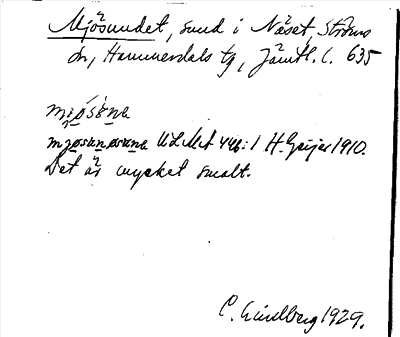 Mjösundet, sund i Näset, Ströms
sn, Hammerdals tg, Jämtl. l. 635
ULMA 446:1 H. Geijer 1910.
Det är mycket smalt.
C. Lindberg 1929.